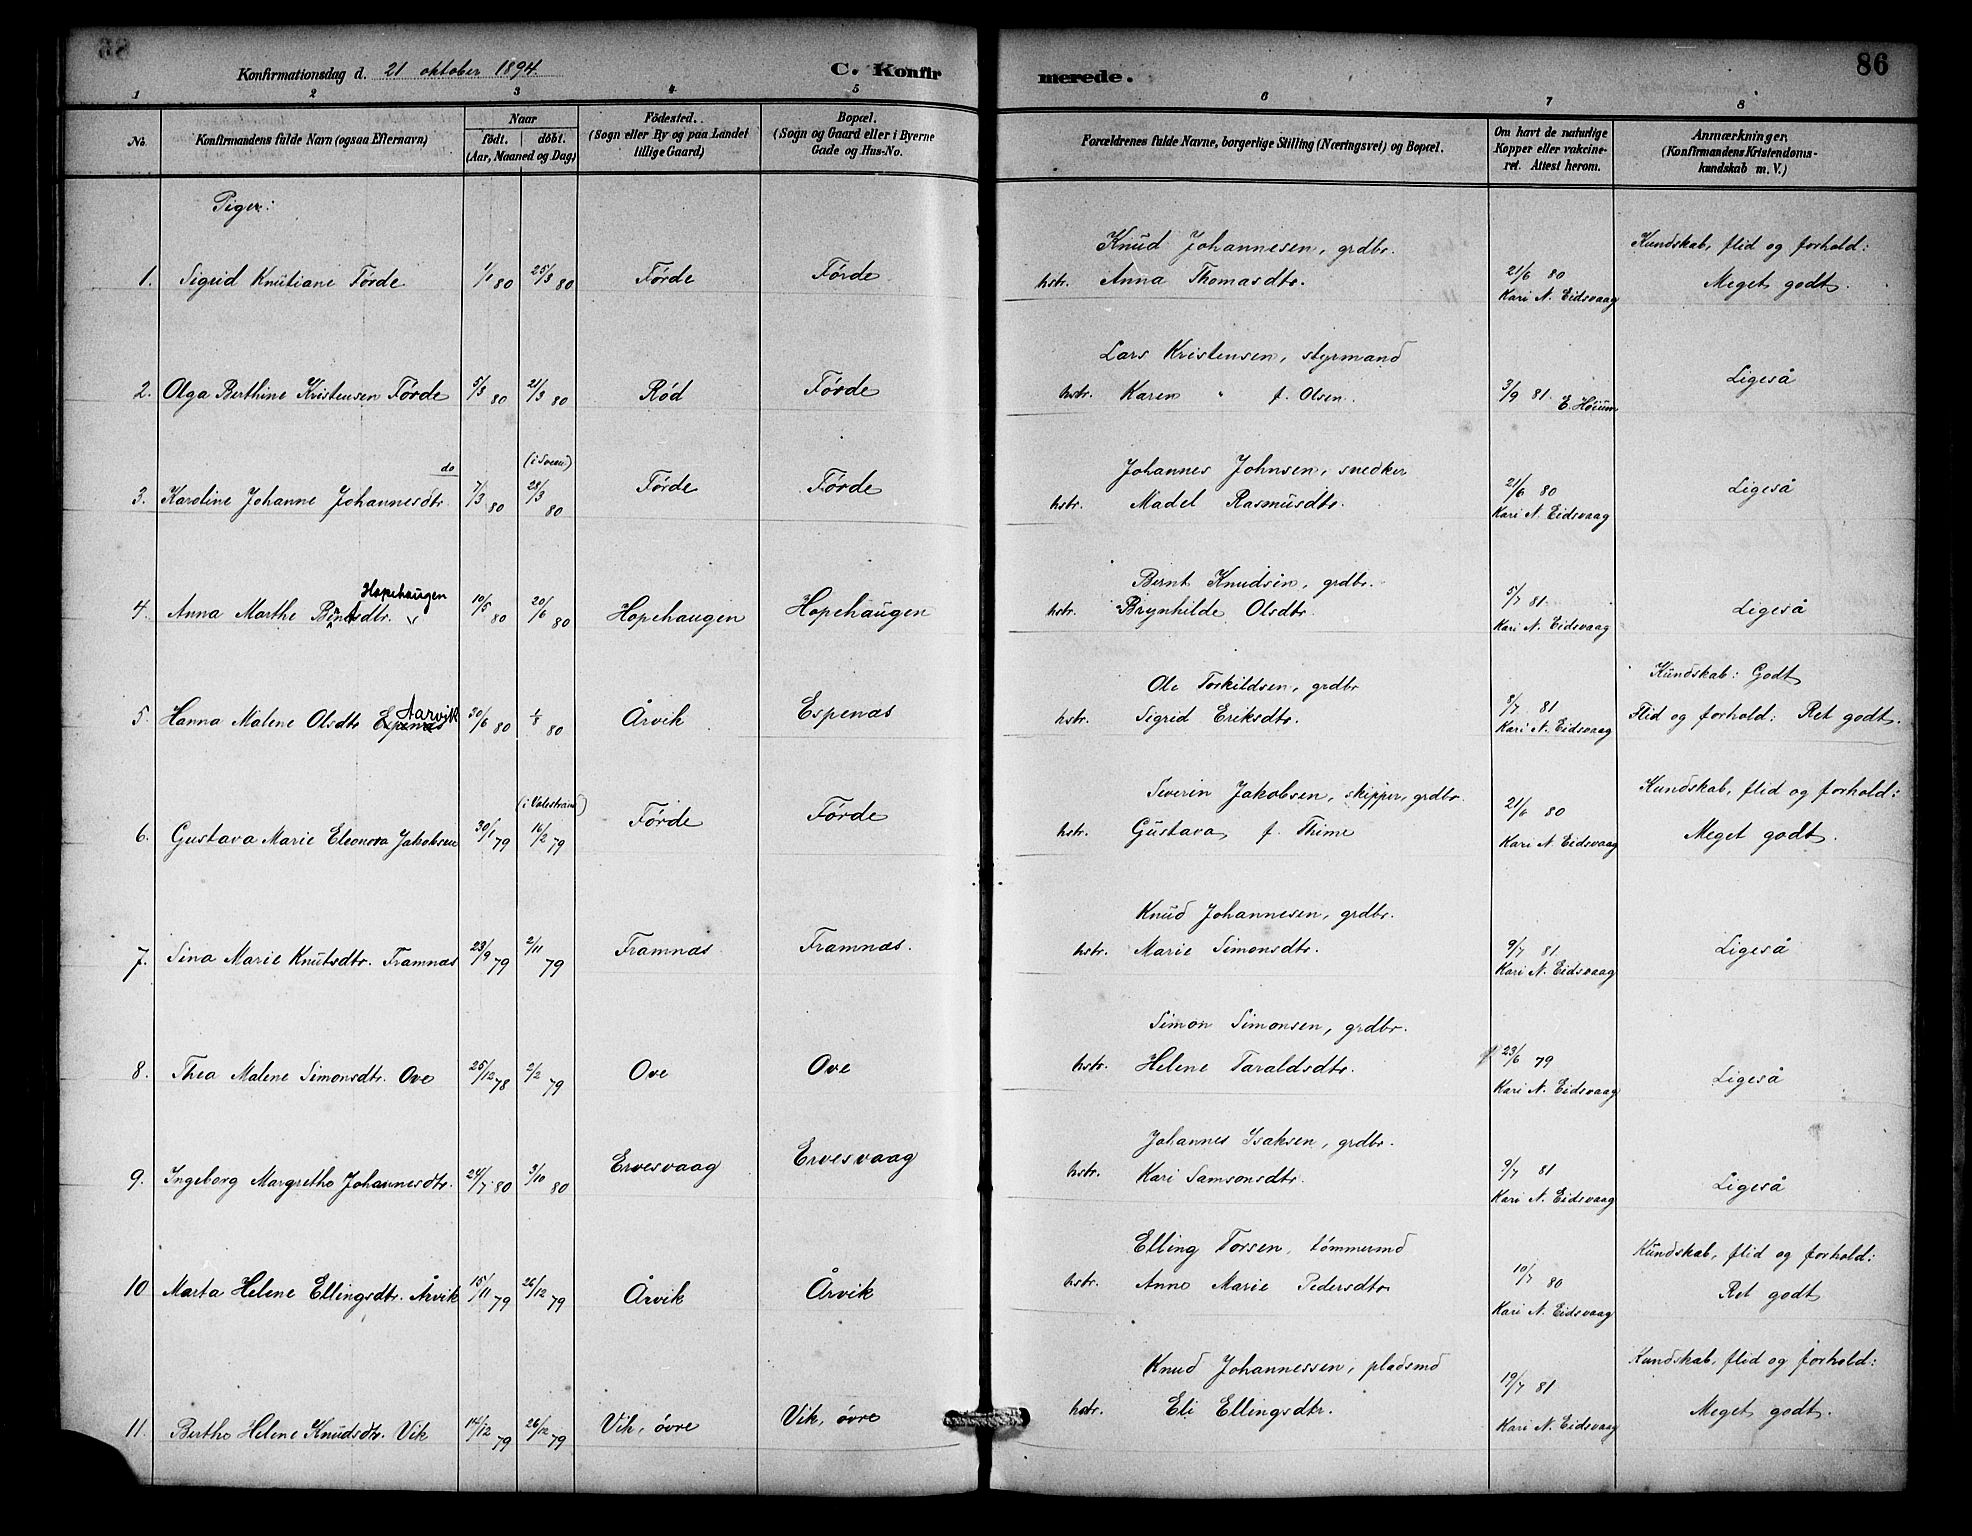 Konfirmationsdag d. 21 oktober 1894. C. Konfirmerede. 86
1 2 3 4 5 6 7 8
No. Konfirmandens fulde Navn (ogsaa Efternavn) Naar födt. döbt. (Aar, Maaned og Dag) Födested. (Sogn eller By og paa Landet tillige Gaard) Bopæl. (Sogn og Gaard eller i Byerne Gade og Hus-No. Forældrenes fulde Navne, borgerlige Stilling (Næringsvei) og Bopæl. Om havt de naturlige Kopper eller vakcineret. Attest herom. Anmærkninger, (Konfirmandens Kristendomskundskab m. V.)
Piger:
Knud Johannesen, grdbr. Kundskab, flid og forhold:
1. Sigrid Knutiane Førde 1/1 80 25/3 80 Førde Førde hstr. Anna Thomasdtr. 21/6 80 Meget godt.
Kari N. Eidsvaag
Lars Kristensen, styrmand
2. Olga Berthine Kristensen Førde 5/3 80 21/3 80 Rød Førde hstr. Karen " f. Olsen. 3/9 81. Ligeså
E. Høium
do (i Sveen) Johannes Johnsen, snedker
3. Karoline Johanne Johannesdtr. 7/3 80 28/3 80 Førde Førde hstr. Madel Rasmusdtr. 21/6 80 Ligeså
Kari N. Eidsvaag
Hopehaugen Bernt Knudsen, grdbr.
4. Anna Marthe Berntsdtr. 10/5 80 20/6 80 Hopehaugen Hopehaugen hstr. Brynhilde Olsdtr. 5/7 81. Ligeså
Kari N. Eidsvaag
Aarvik Ole Torkildsen, grdbr Kundskab: Godt
5. Hanna Malene Olsdtr Espenæs 30/6 80 1/8 80 Årvik Espenæs hstr. Sigrid Eriksdtr. 8/7 81 Flid og forhold: Ret godt.
Kari N. Eidsvaag
(i Valestrand) Severin Jakobsen, skipper, grdbr. Kundskab, flid og forhold:
6. Gustava Marie Eleonora Jakobsen 30/1 79 16/2 79 Førde Førde hstr. Gustava f. Thime 21/6 80 Meget godt.
Kari N. Eidsvaag
Knud Johannesen, grdbr.
7. Sina Marie Knutsdtr. Framnæs 23/9 79 2/11 79 Framnæs Framnæs. hstr. Marie Simonsdtr. 9/7 81 Ligeså
Kari N. Eidsvaag
Simon Simonsen, grdbr.
8. Thea Malene Simonsdtr. Ove 25/12 78 2/2 79 Ove Ove hstr. Helene Taraldsdtr. 23/6 79 Ligeså
Kari N. Eidsvaag
Johannes Isaksen, grdbr.
9. Ingeborg Margrethe Johannesdtr. 24/7 80 3/10 80 Ervesvaag Ervesvaag hstr. Kari Samsonsdtr. 9/7 81 Ligeså
Kari N. Eidsvaag
Elling Torsen, tømmermd Kundskab, flid og forhold:
10 Marta Helene Ellingsdtr. Årvik 15/11 79 26/12 79 Årvik Årvik hstr. Anne Marie Pedersdtr 10/7 80 Ret godt
Kari N. Eidsvaag
Knud Johannessen, pladsmd Kundskab, flid og forhold:
11. Berthe Helene Knudsdtr. Vik 14/12 79 26/12 79 Vik, øvre Vik, øvre hstr. Eli Ellingsdtr. 19/7 81 Meget godt.
Kari N. Eidsvaag